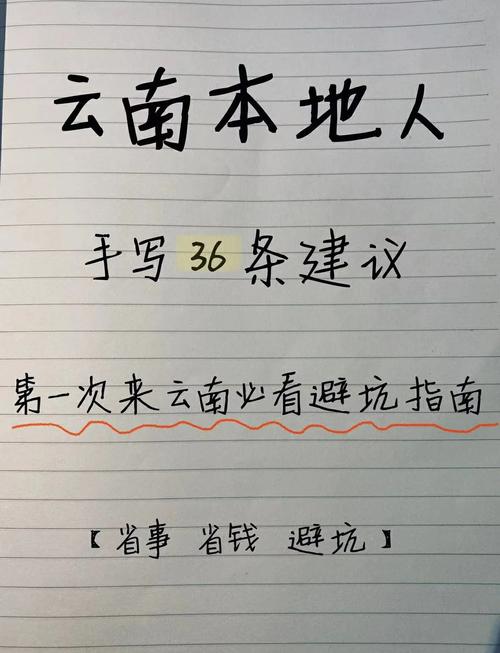 云南本地人
手写36条建议
第一次来云南必看避坑指南
【省事 省钱 避坑】